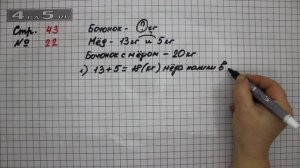 4APLUS.RU
Стр. 43
№ 22
Бочонок - ? кг
Мёд - 13 кг и 5 кг
Бочонок с мёдом - 20 кг
1) 13 + 5 = 18 (кг) мёда налили в